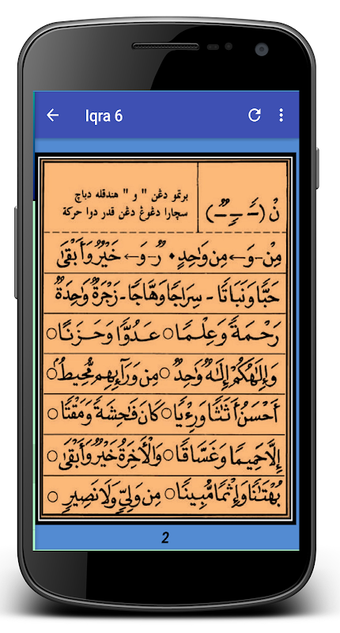 Iqra 6
نْ (ـًـ ـٍـ ـٌـ)
برتمو دڠن " و " هندقله دباچ
سچارا دڠوڠ دڠن قدر دوا حركة
مِنْ-وَ←مِن وَاحِدٍ • رٌ-وَ←خَيْرٌ وَأَبْقَىٰ
حَبًّا وَنَبَاتًا - سِرَاجًا وَهَّاجًا - زَجْرَةٌ وَاحِدَةٌ
رَحْمَةً وَعِلْمًا ○ عَدُوًّا وَحَزَنًا ○
وَإِلَٰهُكُمْ إِلَٰهٌ وَاحِدٌ ○ مِن وَرَآئِهِم مُّحِيطٌ ○
أَحْسَنُ أَثَاثًا وَرِءْيًا ○ كَانَ فَاحِشَةً وَمَقْتًا ○
إِلَّا حَمِيمًا وَغَسَّاقًا ○ وَالْآخِرَةُ خَيْرٌ وَأَبْقَىٰ ○
بُهْتَانًا وَإِثْمًا مُّبِينًا ○ مِن وَلِيٍّ وَلَا نَصِيرٍ ○
2